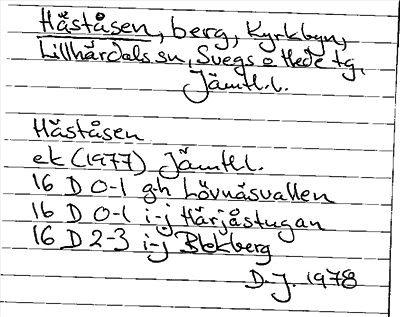 Håståsen, berg, Kyrkbyn,
Lillhärdals sn, Svegs o Hede tg,
Jämtl.l.
Håståsen
ek (1977) Jämtl.l.
16 D 0-1 g-h Lövnäsvallen
16 D 0-1 i-j Härjåstugan
16 D 2-3 i-j Blekberg
D.J. 1978